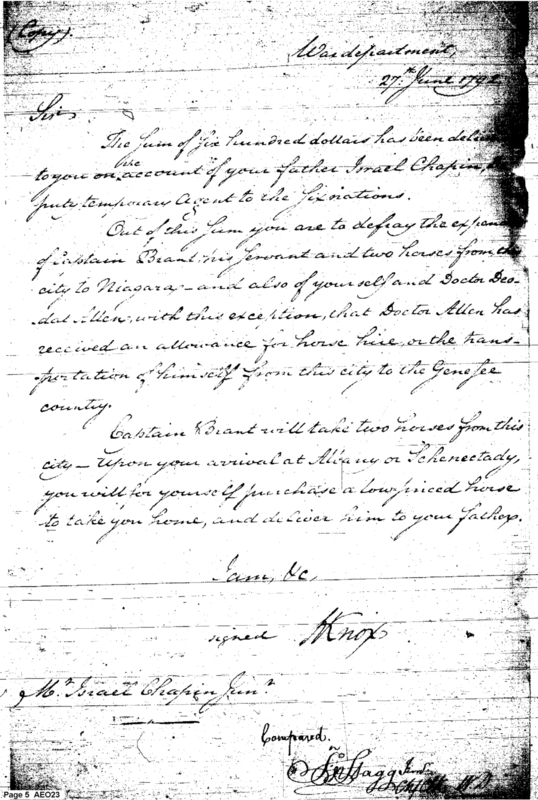 (Copy).
War department,
27th June 1792
Sir
The sum of six hundred dollars has been deliv
to you on the account of your father Israel Chapin,
puty, temporary Agent to the six nations.
Out of this sum you are to defray the expen
of Captain Brant his servant and two horses from the
city to Niagara,—and also of yourself and Doctor Deo-
dat Allen, with this exception, that Doctor Allen has
received an allowance for horse hire, or the trans-
portation of himself from this city to the Genesee
country.
Captain Brant will take two horses from this
city— Upon your arrival at Albany or Schenectady,
you will for yourself purchase a low priced horse
to take you home, and deliver him to your father.
I am, &c,
signed HKnox
Mr Israel Chapin Junr
Compared.
Jno Stagg Junr
Chf Clk W. D.
Page 5 AEO23